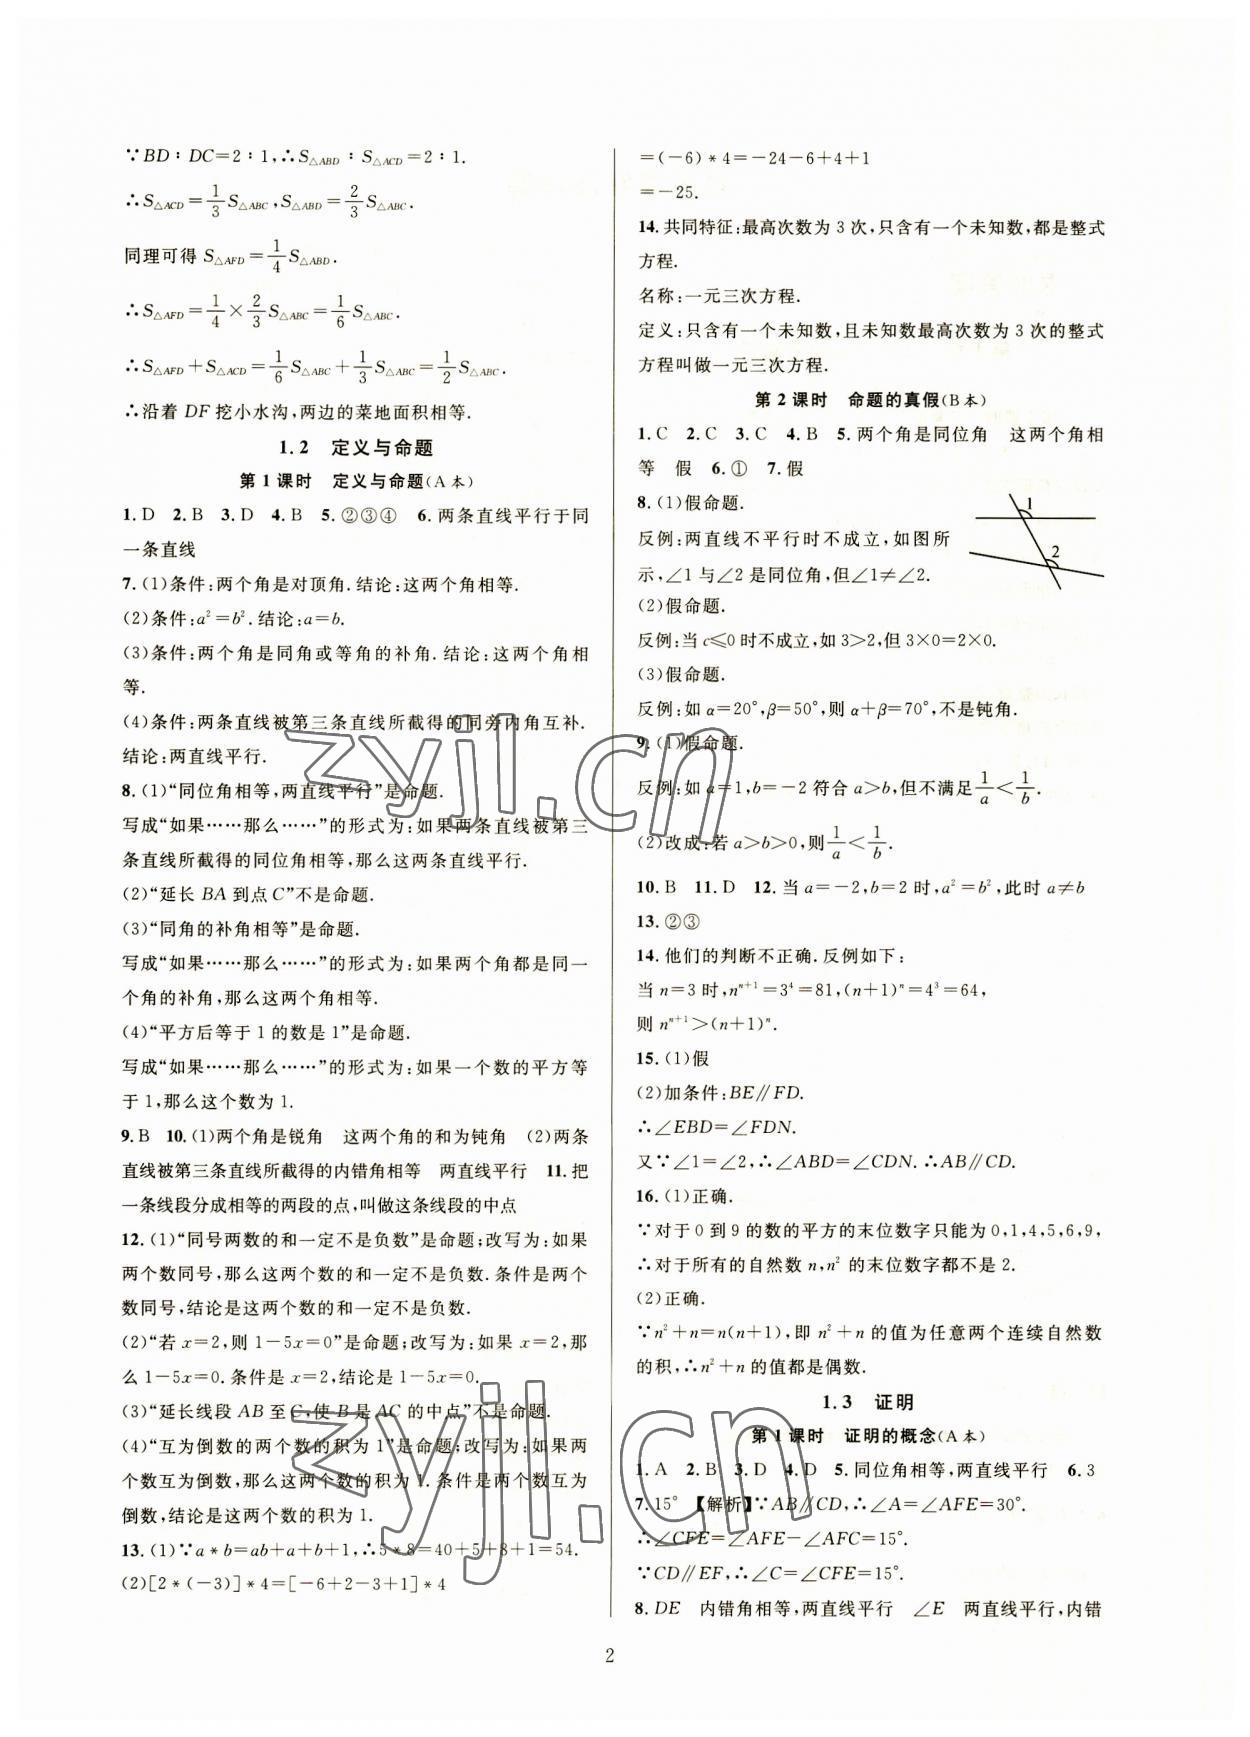 ∵BD∶DC=2∶1,∴S△ABD∶S△ACD=2∶1.
∴S△ACD=1/3S△ABC,S△ABD=2/3S△ABC.
同理可得 S△AFD=1/4S△ABD.
∴S△AFD=1/4×2/3S△ABC=1/6S△ABC.
∴S△AFD+S△ACD=1/6S△ABC+1/3S△ABC=1/2S△ABC.
∴沿着 DF 挖小水沟,两边的菜地面积相等.
1.2 定义与命题
第 1 课时 定义与命题(A 本)
1.D 2.B 3.D 4.B 5.②③④ 6.两条直线平行于同
一条直线
7.(1)条件:两个角是对顶角.结论:这两个角相等.
(2)条件:a²=b².结论:a=b.
(3)条件:两个角是同角或等角的补角.结论:这两个角相
等.
(4)条件:两条直线被第三条直线所截得的同旁内角互补.
结论:两直线平行.
8.(1)“同位角相等,两直线平行”是命题.
写成“如果……那么……”的形式为:如果两条直线被第三
条直线所截得的同位角相等,那么这两条直线平行.
(2)“延长 BA 到点 C”不是命题.
(3)“同角的补角相等”是命题.
写成“如果……那么……”的形式为:如果两个角都是同一
个角的补角,那么这两个角相等.
(4)“平方后等于 1 的数是 1”是命题.
写成“如果……那么……”的形式为:如果一个数的平方等
于 1,那么这个数为 1.
9.B 10.(1)两个角是锐角 这两个角的和为钝角 (2)两条
直线被第三条直线所截得的内错角相等 两直线平行 11.把
一条线段分成相等的两段的点,叫做这条线段的中点
12.(1)“同号两数的和一定不是负数”是命题;改写为:如果
两个数同号,那么这两个数的和一定不是负数.条件是两个
数同号,结论是这两个数的和一定不是负数.
(2)“若 x=2,则 1-5x=0”是命题;改写为:如果 x=2,那
么 1-5x=0.条件是 x=2,结论是 1-5x=0.
(3)“延长线段 AB 至 C,使 B 是 AC 的中点”不是命题.
(4)“互为倒数的两个数的积为 1”是命题;改写为:如果两
个数互为倒数,那么这两个数的积为 1.条件是两个数互为
倒数,结论是这两个数的积为 1.
13.(1)∵a*b=ab+a+b+1,∴5*8=40+5+8+1=54.
(2)[2*(-3)]*4=[-6+2-3+1]*4
=(-6)*4=-24-6+4+1
=-25.
14.共同特征:最高次数为 3 次,只含有一个未知数,都是整式
方程.
名称:一元三次方程.
定义:只含有一个未知数,且未知数最高次数为 3 次的整式
方程叫做一元三次方程.
第 2 课时 命题的真假(B 本)
1.C 2.C 3.C 4.B 5.两个角是同位角 这两个角相
等 假 6.① 7.假
8.(1)假命题.
反例:两直线不平行时不成立,如图所
示,∠1 与∠2 是同位角,但∠1≠∠2.
1
2
(2)假命题.
反例:当 c≤0 时不成立,如 3>2,但 3×0=2×0.
(3)假命题.
反例:如 α=20°,β=50°,则 α+β=70°,不是钝角.
9.(1)假命题.
反例:如 a=1,b=-2 符合 a>b,但不满足1/a<1/b.
(2)改成:若 a>b>0,则1/a<1/b.
10.B 11.D 12.当 a=-2,b=2 时,a²=b²,此时 a≠b
13.②③
14.他们的判断不正确.反例如下:
当 n=3 时,nⁿ⁺¹=3⁴=81,(n+1)ⁿ=4³=64,
则 nⁿ⁺¹>(n+1)ⁿ.
15.(1)假
(2)加条件:BE∥FD.
∴∠EBD=∠FDN.
又∵∠1=∠2,∴∠ABD=∠CDN.∴AB∥CD.
16.(1)正确.
∵对于 0 到 9 的数的平方的末位数字只能为 0,1,4,5,6,9,
∴对于所有的自然数 n,n² 的末位数字都不是 2.
(2)正确.
∵n²+n=n(n+1),即 n²+n 的值为任意两个连续自然数
的积,∴n²+n 的值都是偶数.
1.3 证明
第 1 课时 证明的概念(A 本)
1.A 2.B 3.D 4.D 5.同位角相等,两直线平行 6.3
7.15° 【解析】∵AB∥CD,∴∠A=∠AFE=30°.
∴∠CFE=∠AFE-∠AFC=15°.
∵CD∥EF,∴∠C=∠CFE=15°.
8.DE 内错角相等,两直线平行 ∠E 两直线平行,内错
2
zyjl.cn
zyjl.cn